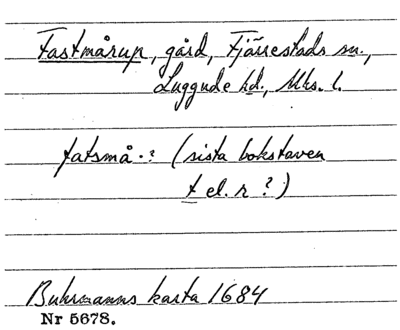 Fastmårup, gård, Fjärrestads sn.,
Luggude hd., Mhs. l.
fatsmå.? (sista bokstaven
t el. r ?)
Buhrmanns karta 1684
Nr 5678.